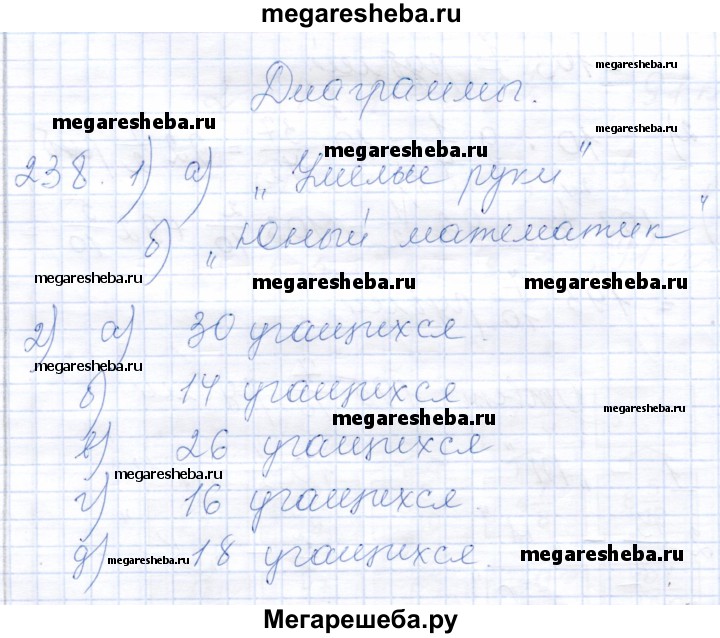 megaresheba.ru
megaresheba.ru
Диаграммы.
megaresheba.ru
megaresheba.ru
megaresheba.ru
238. 1) а) „Умелые руки"
б) „Юный математик"
megaresheba.ru
megaresheba.ru
megaresheba.ru
2) а) 30 учащихся.
megaresheba.ru
б) 14 учащихся
megaresheba.ru
megaresheba.ru
в) 26 учащихся
megaresheba.ru
г) 16 учащихся.
д) 18 учащихся.
megaresheba.ru
megaresheba.ru
Мегарешеба.ру